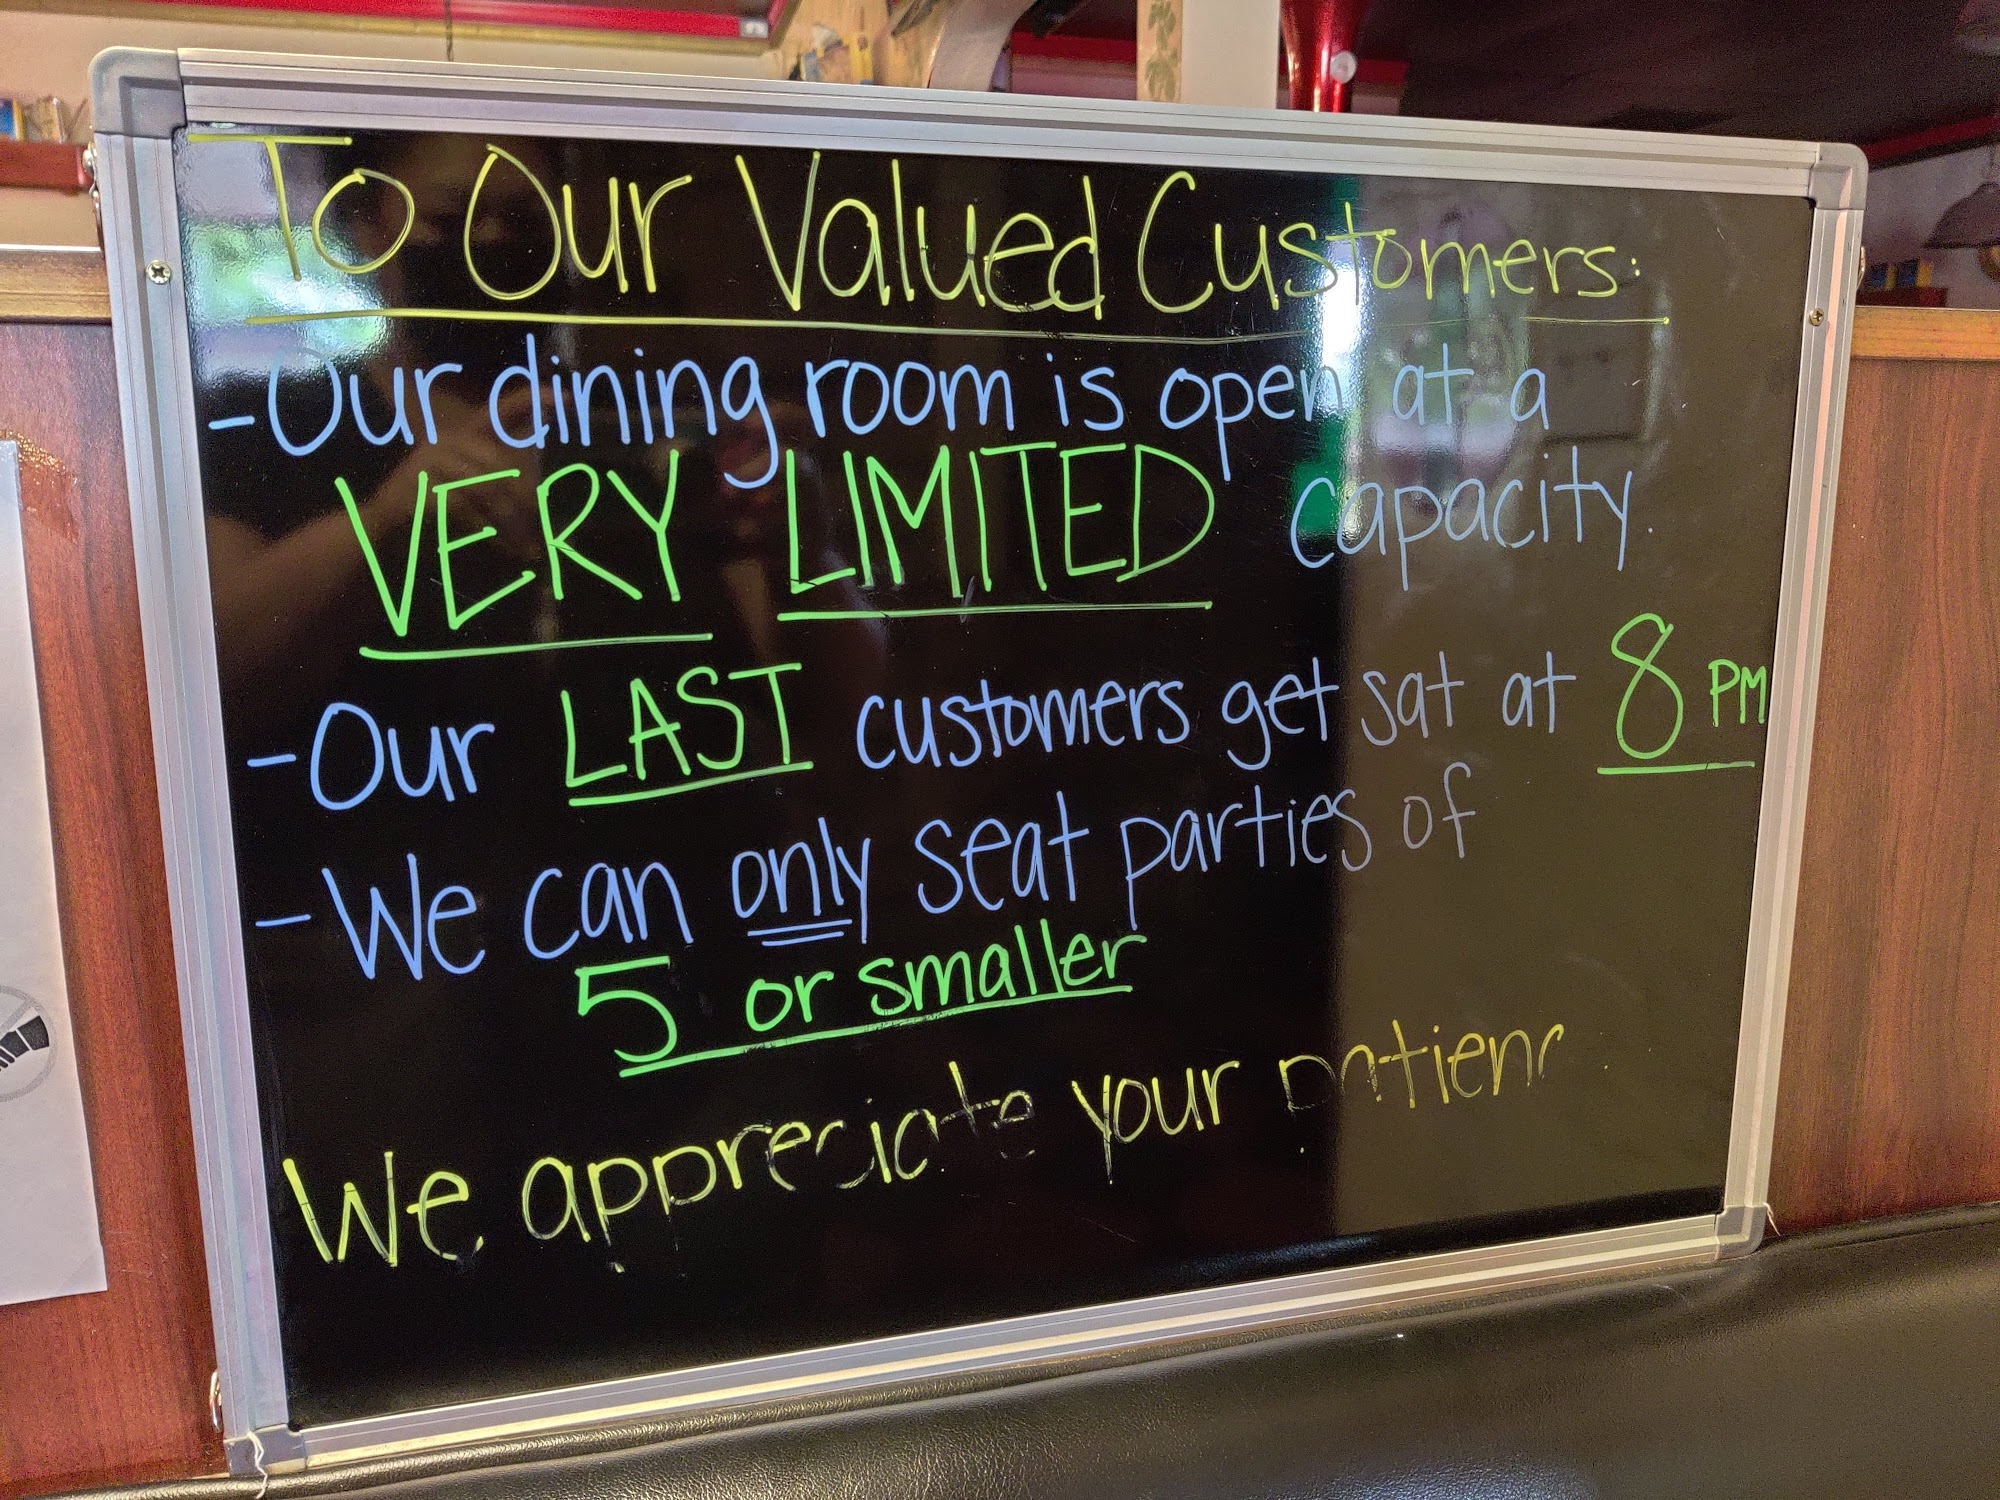 To Our Valued Customers:
-Our dining room is open at a
VERY LIMITED capacity.
-Our LAST customers get sat at 8 PM
-We can only seat parties of
5 or smaller
We appreciate your